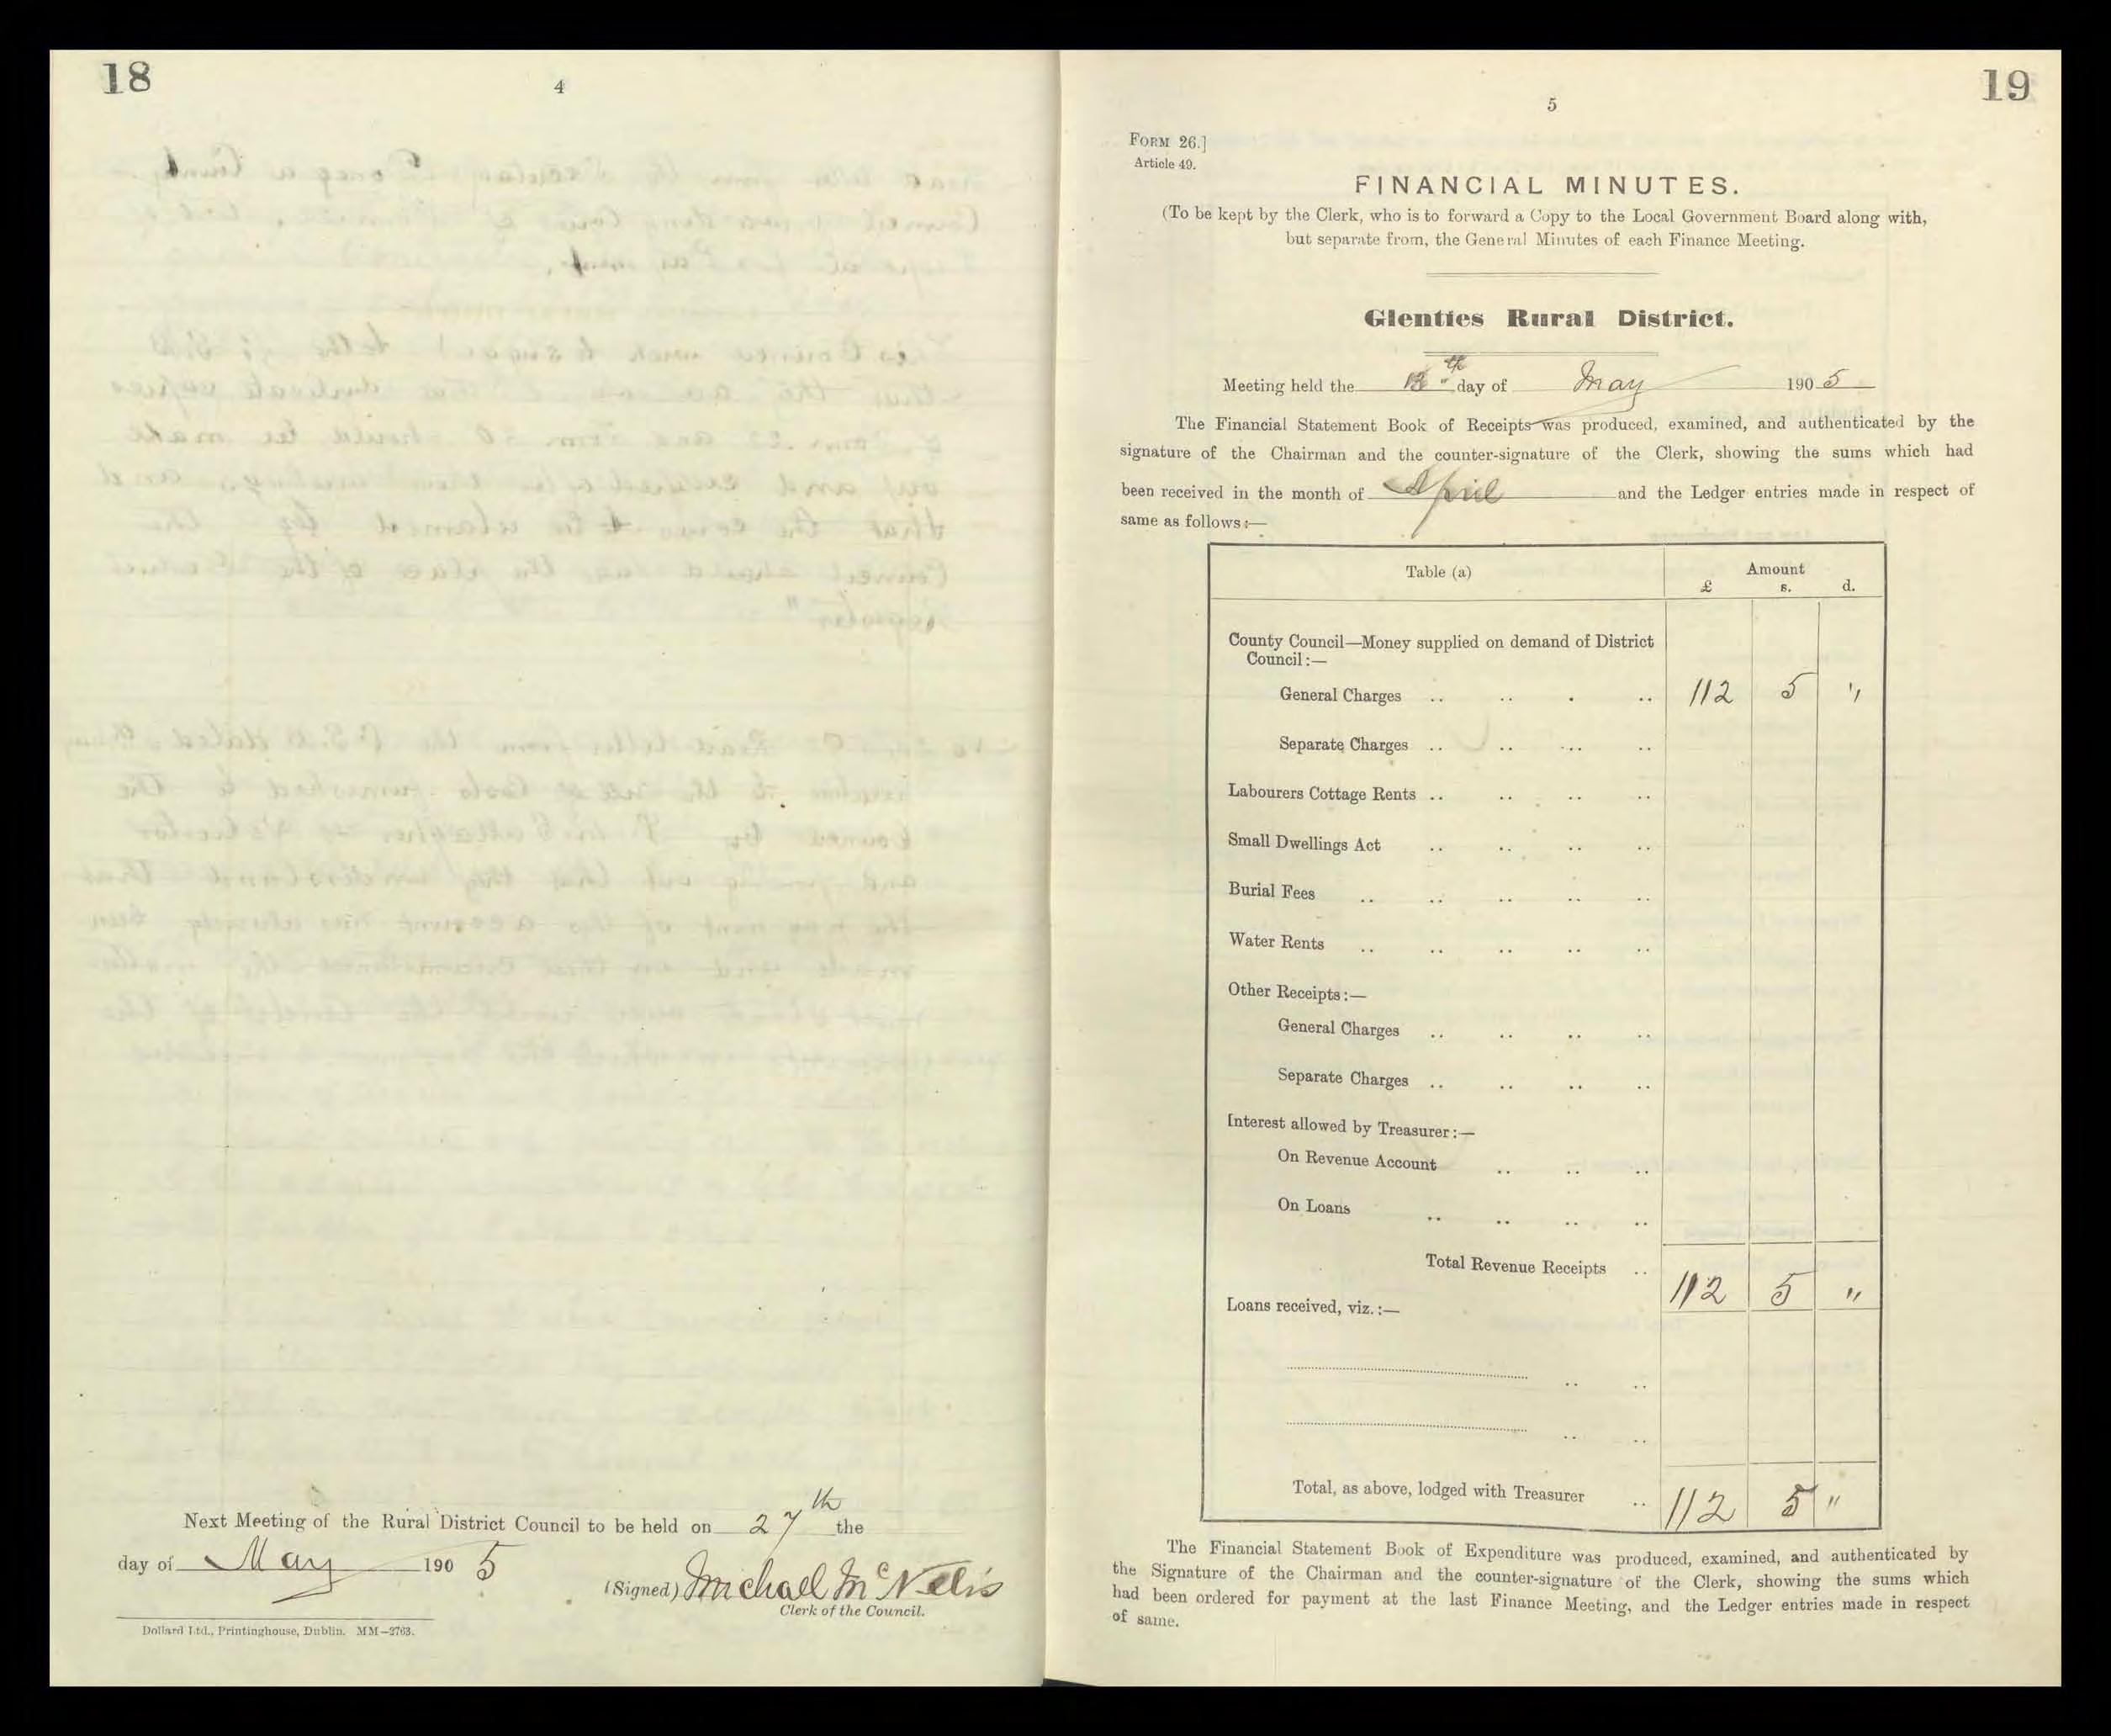 18
4
Next Meeting of the Rural District Council to be held on 27th the
day of May 1905
(Signed) Michael McNelis
Clerk of the Council.
Dollard Ltd., Printinghouse, Dublin. MM—2763.
19
5
FORM 26.]
Article 49.
FINANCIAL MINUTES.
(To be kept by the Clerk, who is to forward a Copy to the Local Government Board along with,
but separate from, the General Minutes of each Finance Meeting.
Glenties Rural District.
Meeting held the th day of May 1905
The Financial Statement Book of Receipts was produced, examined, and authenticated by the
signature of the Chairman and the counter-signature of the Clerk, showing the sums which had
been received in the month of April and the Ledger entries made in respect of
same as follows:—
Table (a) Amount
£ s. d.
County Council—Money supplied on demand of District
Council:—
General Charges .. .. . .. 112 5 "
Separate Charges .. .. ... ..
Labourers Cottage Rents .. .. .. ..
Small Dwellings Act .. .. .. ..
Burial Fees .. .. .. .. ..
Water Rents .. .. .. .. ..
Other Receipts:—
General Charges .. .. .. ..
Separate Charges .. .. .. ..
Interest allowed by Treasurer:—
On Revenue Account .. .. ..
On Loans .. .. .. ..
Total Revenue Receipts .. 112 5 "
Loans received, viz.:—
Total, as above, lodged with Treasurer .. 112 5 "
The Financial Statement Book of Expenditure was produced, examined, and authenticated by
the Signature of the Chairman and the counter-signature of the Clerk, showing the sums which
had been ordered for payment at the last Finance Meeting, and the Ledger entries made in respect
of same.